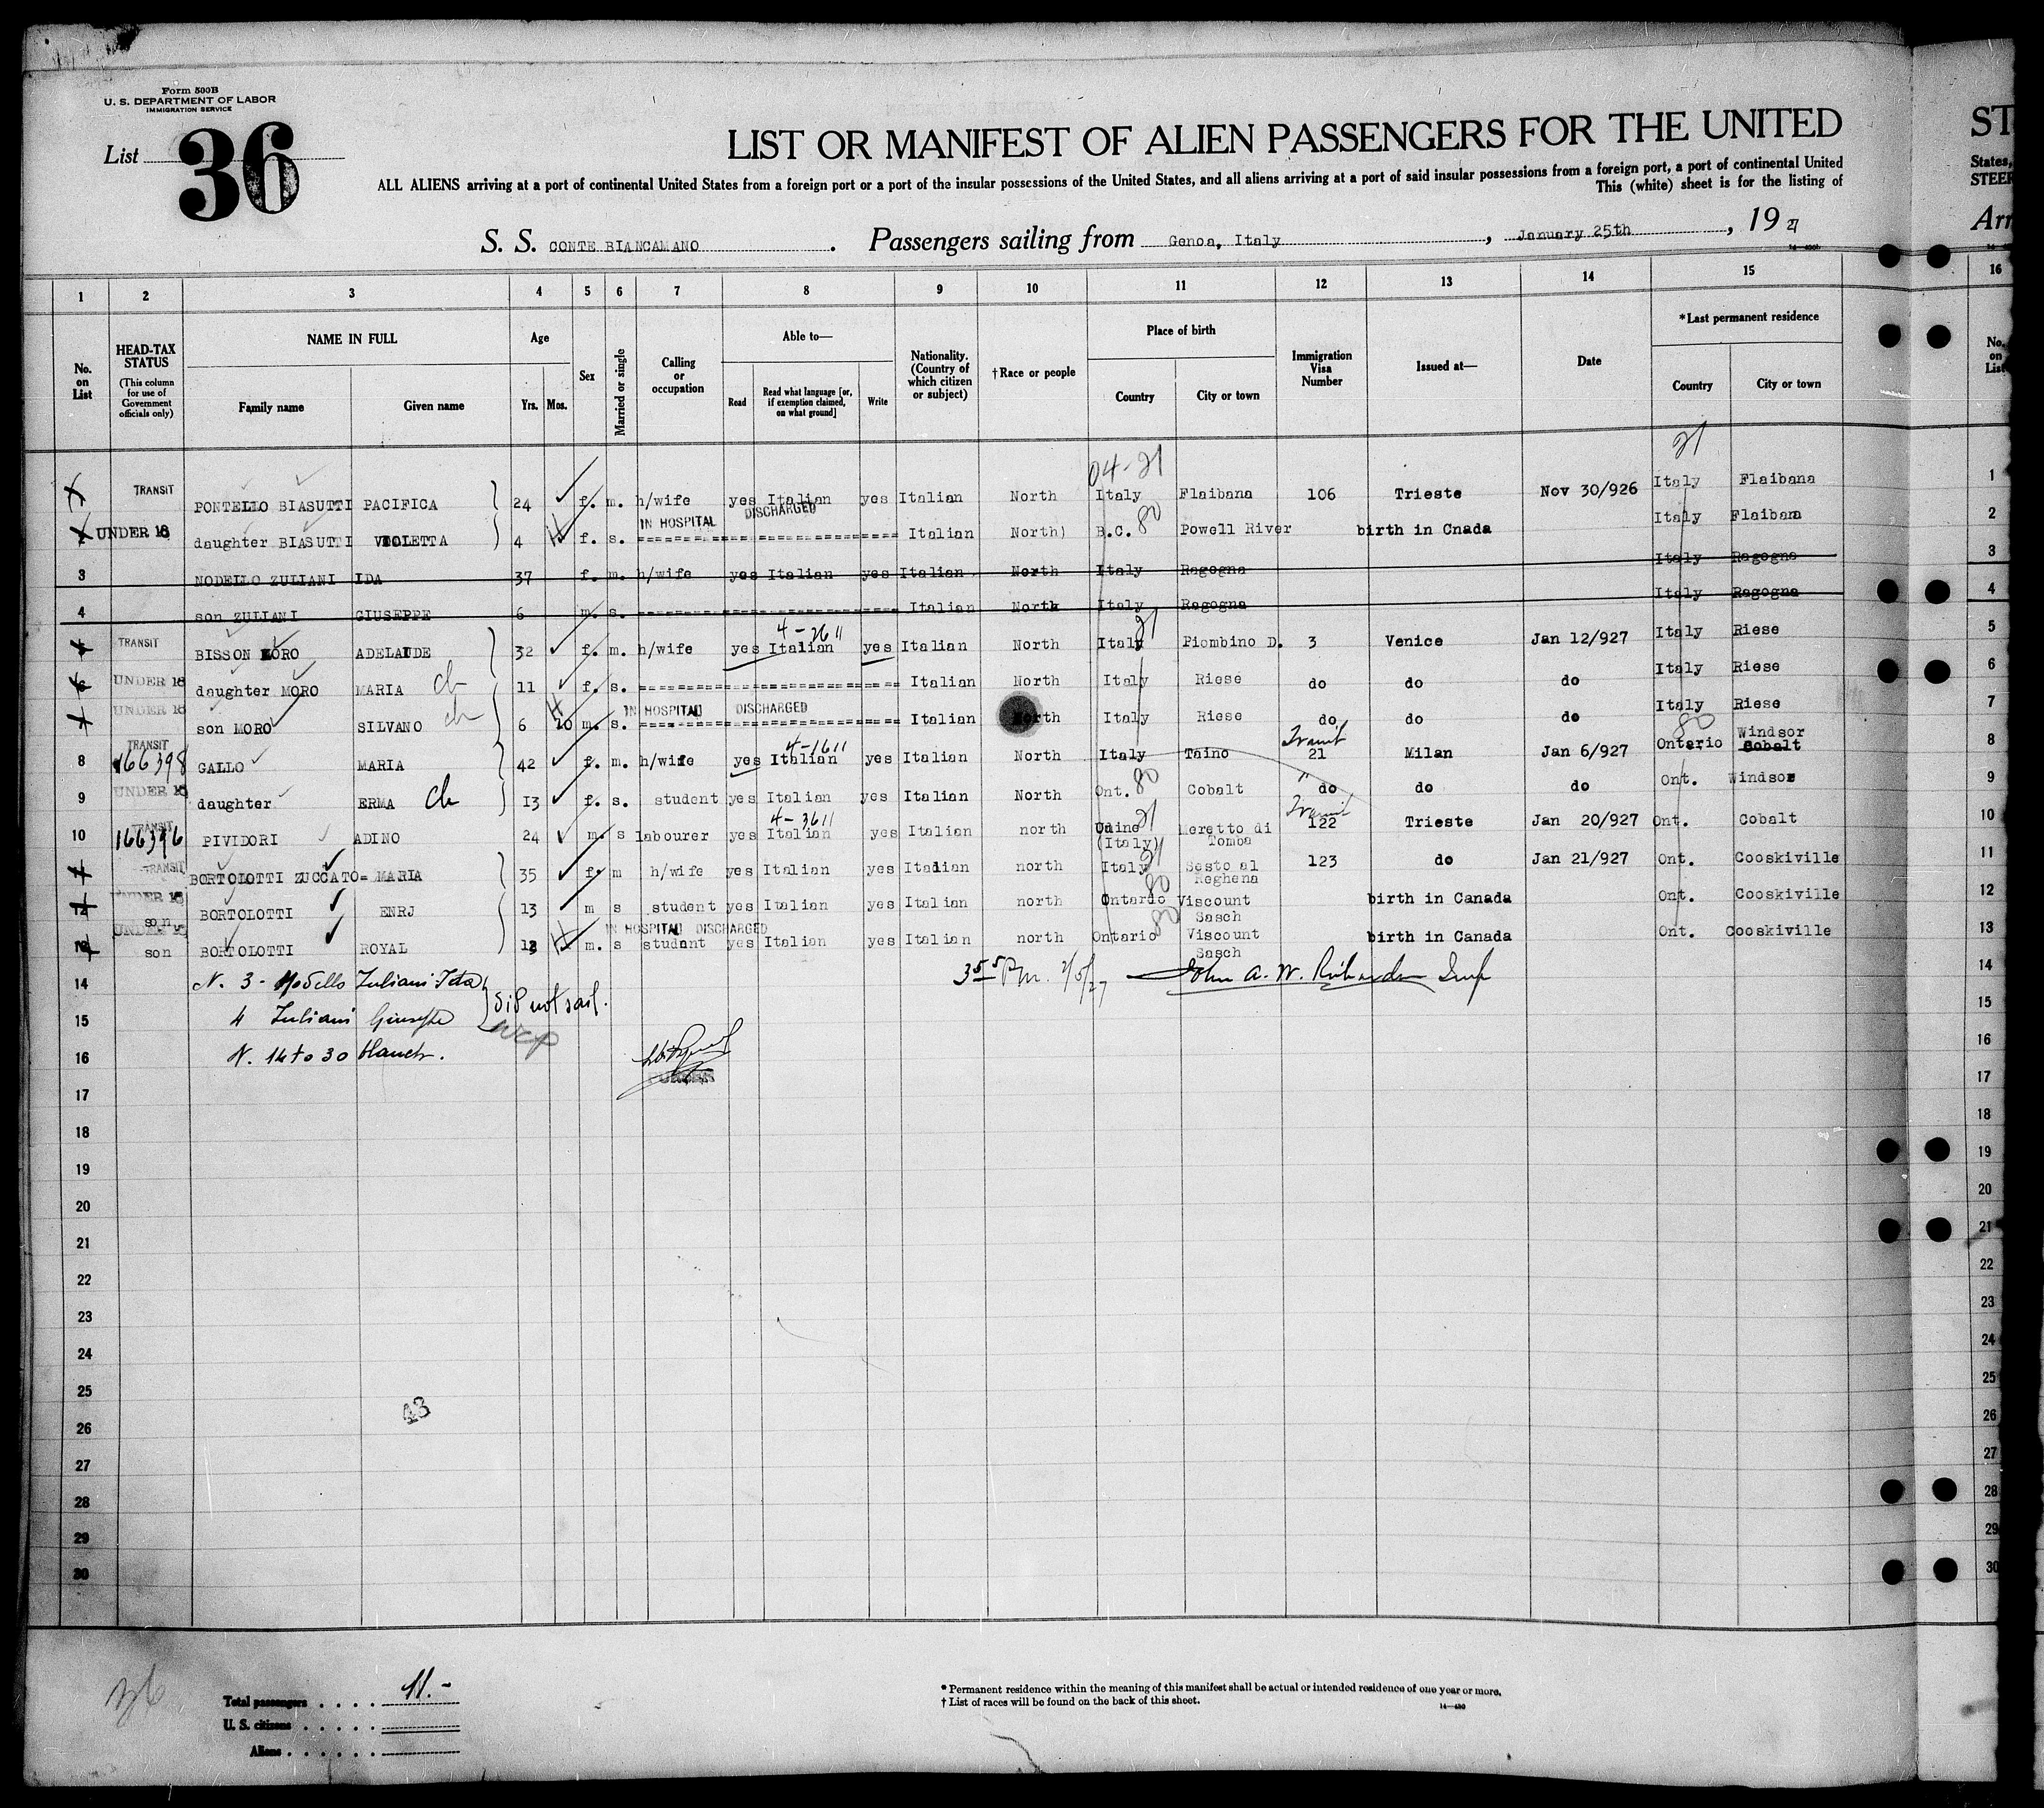 Form 500B
U. S. DEPARTMENT OF LABOR
IMMIGRATION SERVICE
List 36
LIST OR MANIFEST OF ALIEN PASSENGERS FOR THE UNITED
ST
ALL ALIENS arriving at a port of continental United States from a foreign port or a port of the insular possessions of the United States, and all aliens arriving at a port of said insular possessions from a foreign port, a port of continental United
States,
This (white) sheet is for the listing of
STEER
S. S. CONTE BIANCAMANO . Passengers sailing from Genoa, Italy , January 25th , 19 27
Arr
1 2 3 4 5 6 7 8 9 10 11 12 13 14 15 16
No. on List
HEAD-TAX STATUS
(This column for use of Government officials only)
NAME IN FULL
Family name Given name
Age
Yrs. Mos.
Sex
Married or single
Calling or occupation
Able to—
Read Read what language [or, if exemption claimed, on what ground] Write
Nationality. (Country of which citizen or subject)
†Race or people
Place of birth
Country City or town
Immigration Visa Number
Issued at—
Date
*Last permanent residence
Country City or town
No. on List
04-21 21
TRANSIT PONTELLO BIASUTTI PACIFICA 24 f. m. h/wife yes Italian yes Italian North Italy Flaibana 106 Trieste Nov 30/926 Italy Flaibana 1
IN HOSPITAL DISCHARGED 80
UNDER 16 daughter BIASUTTI VIOLETTA 4 f. s. Italian North) B.C. Powell River birth in Cnada Italy Flaibana 2
3 NODELLO ZULIANI IDA 37 f. m. h/wife yes Italian yes Italian North Italy Ragogna Italy Ragogna 3
4 son ZULIANI GIUSEPPE 6 m. s. Italian North Italy Ragogna Italy Ragogna 4
4-2611 21
TRANSIT BISSON MORO ADELAIDE 32 f. m. h/wife yes Italian yes Italian North Italy Piombino D. 3 Venice Jan 12/927 Italy Riese 5
6 UNDER 16 daughter MORO MARIA ch 11 f. s. Italian North Italy Riese do do do Italy Riese 6
IN HOSPITAL DISCHARGED
UNDER 16 son MORO SILVANO ch 6 10 m. s. Italian North Italy Riese do do do Italy Riese 7
TRANSIT 4-1611 Transit 80 Windsor
8 166398 GALLO MARIA 42 f. m. h/wife yes Italian yes Italian North Italy Taino 21 Milan Jan 6/927 Ontario Cobalt 8
9 UNDER 16 daughter ERMA Ch 13 f. s. student yes Italian yes Italian North Ont. 80 Cobalt " do do do Ont. Windsor 9
TRANSIT 4-3611 21 Transit
10 166396 PIVIDORI ADINO 24 m. s labourer yes Italian yes Italian north Udine (Italy) Meretto di Tomba 122 Trieste Jan 20/927 Ont. Cobalt 10
TRANSIT BORTOLOTTI ZUCCATO= MARIA 35 f. m h/wife yes Italian yes Italian north Italy 21 Sesto al Reghena 123 do Jan 21/927 Ont. Cooskiville 11
12 UNDER 16 son BORTOLOTTI ENRJ 13 m s student yes Italian yes Italian north Ontario 80 Viscount Sasch birth in Canada Ont. Cooskiville 12
IN HOSPITAL DISCHARGED
13 UNDER 16 son BORTOLOTTI ROYAL m. s student yes Italian yes Italian north Ontario 80 Viscount Sasch birth in Canada Ont. Cooskiville 13
14 N. 3 - Nodello Zuliani Ida 14
355 Pm. 2/5/27 John A. W. Richardson Insp
15 4 Zuliani Giuseppe did not sail. 15
16 N. 14 to 30 blanch. 16
PURSER
17 17
18 18
19 19
20 20
21 21
22 22
23 23
24 24
25 25
43
26 26
27 27
28 28
29 29
30 30
36
Total passengers . . . . 11.-
U. S. citizens . . . . .
Aliens . . . . . .
* Permanent residence within the meaning of this manifest shall be actual or intended residence of one year or more.
† List of races will be found on the back of this sheet.